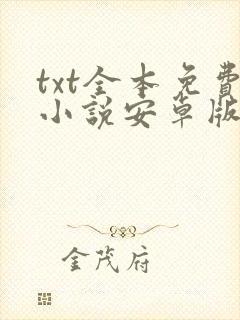 txt全本免費
小說安卓版
金茂府